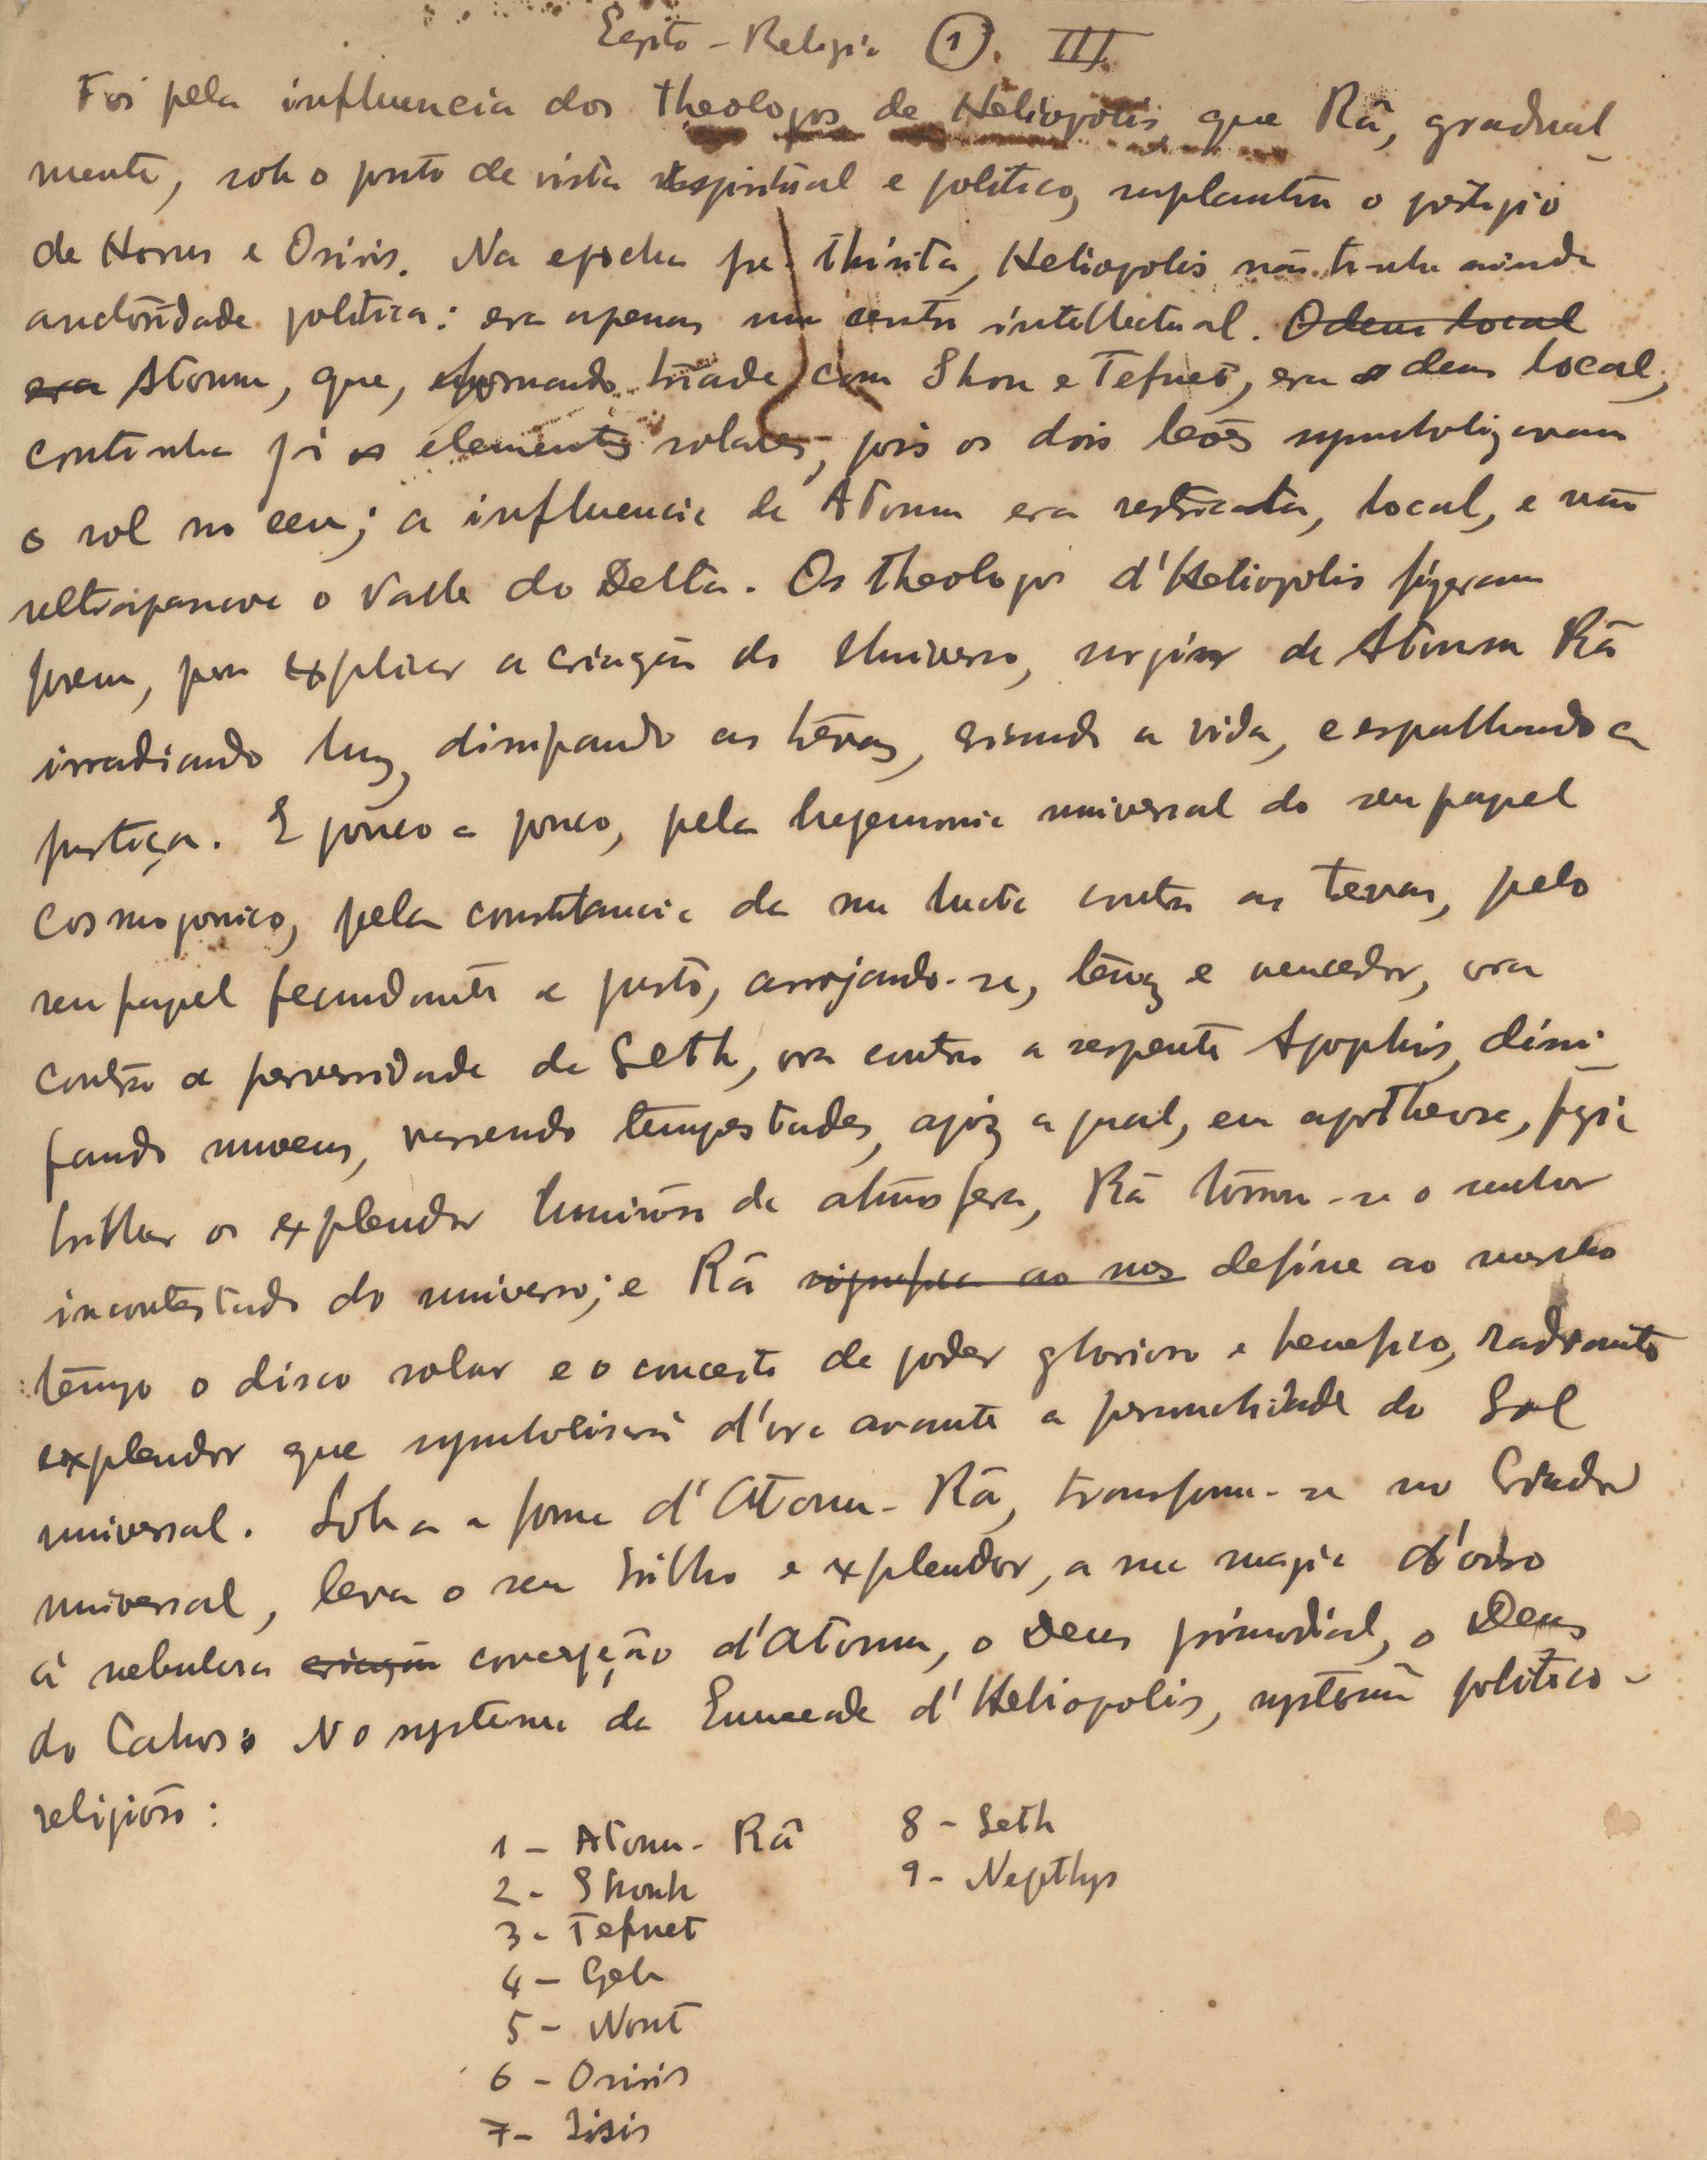 Egipto - Religião 1. III
Foi pela influencia dos theologos de Heliopolis que Râ, gradual
mente, sob o ponto de vista espiritual e politico, suplantou o prestigio
de Horus e Osiris. Na epocha pre-thinita, Heliopolis não tinha ainda
auctoridade politica: era apenas um centro intellectual. O deus local
era Atoum, que, formando triade com Shou e Tefnet, era o deus local,
continha já os elementos solares, pois os dois leões symbolizavam
o sol no ceu; a influencia de Atoum era restricta, local, e não
ultrapassava o Valle do Delta. Os theologos d'Heliopolis fizeram
porem, para explicar a criação do Universo, surgir de Atoum Râ
irradiando luz, dissipando as trévas, criando a vida, e espalhando a
justiça. E pouco a pouco, pela hegemonia universal do seu papel
cosmogonico, pela constancia da sua lucta contra as trevas, pelo
seu papel fecundante e justo, arrojando-se, tenaz e vencedor, ora
contra a perversidade de Seth, ora contra a serpente Apophis, dissi-
pando nuvens, varrendo tempestades, apoz a qual, em apotheose, fazia
brilhar o explendor luminoso da atmosfera, Râ tornou-se o senhor
incontestado do universo; e Râ significa ao nos define ao mesmo
tempo o disco solar e o conceito de poder glorioso e benefico, radiante
explendor que symbolisará d'ora avante a personalidade do Sol
universal. Sob a forma d'Atoum-Râ, transforma-se no Criador
universal, leva o seu brilho e explendor, a sua magia d'oiro
á nebulosa criação concepção d'Atoum, o Deus primordial, o Deus
do Cahos. No systema da Enneade d'Heliopolis, systema politico-
religioso:
1 - Atoum-Râ
2 - Shouh
3 - Tefnet
4 - Geb
5 - Nout
6 - Osiris
7 - Isis
8 - Seth
9 - Nepthys